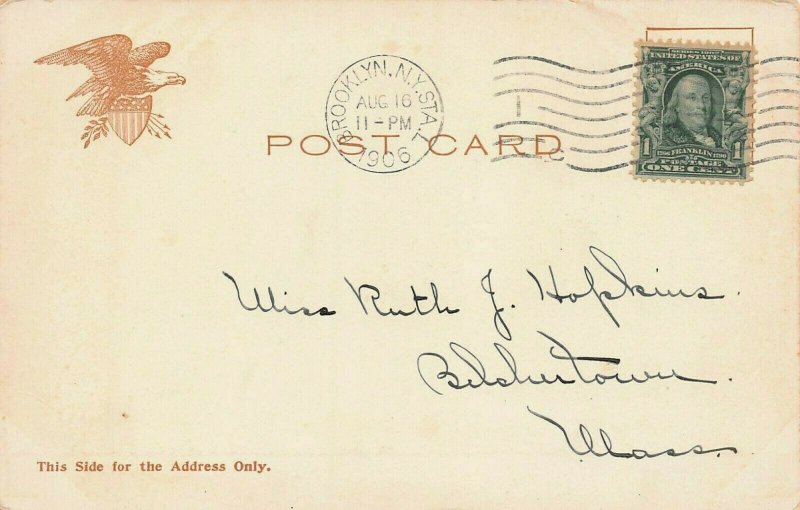 SERIES 1902
UNITED STATES OF
AMERICA
BROOKLYN, N.Y. STA. L
AUG 16
11-PM
1906
POST CARD
1 1706 FRANKLIN 1790 1
POSTAGE
ONE CENT
Miss Ruth J. Hopkins.
Belchertown.
Mass.
This Side for the Address Only.